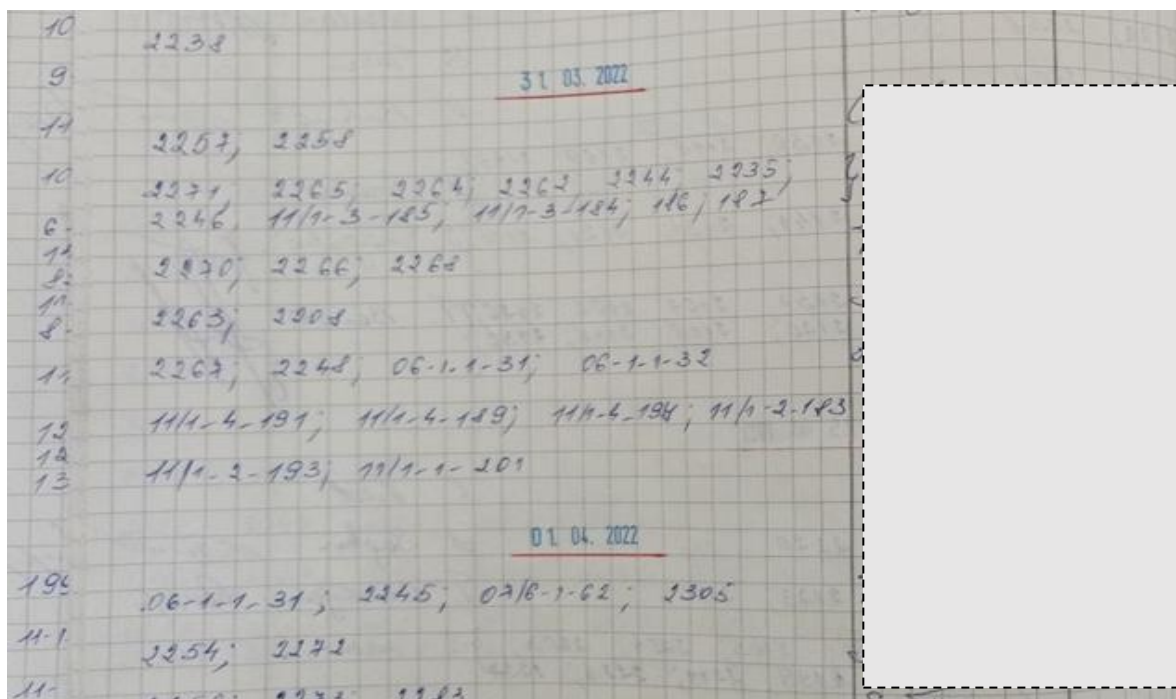 10
2238
9
31. 03. 2022
11
2257; 2258
10
2271, 2265; 2264; 2262, 2244, 2235;
2246, 11/1-3-185; 11/1-3-184; 186, 187
6-
2270; 2266; 2268
2263; 2208
8-
2267; 2248; 06-1-1-31; 06-1-1-32
11/1-4-191; 11/1-4-189; 11/1-2-183
12
12
13
11/1-2-193; 11/1-1-201
01. 04. 2022
06-1-1-31; 2245; 07/6-1-62; 2305
11-1.
2254; 2272
11-
2273; 2283